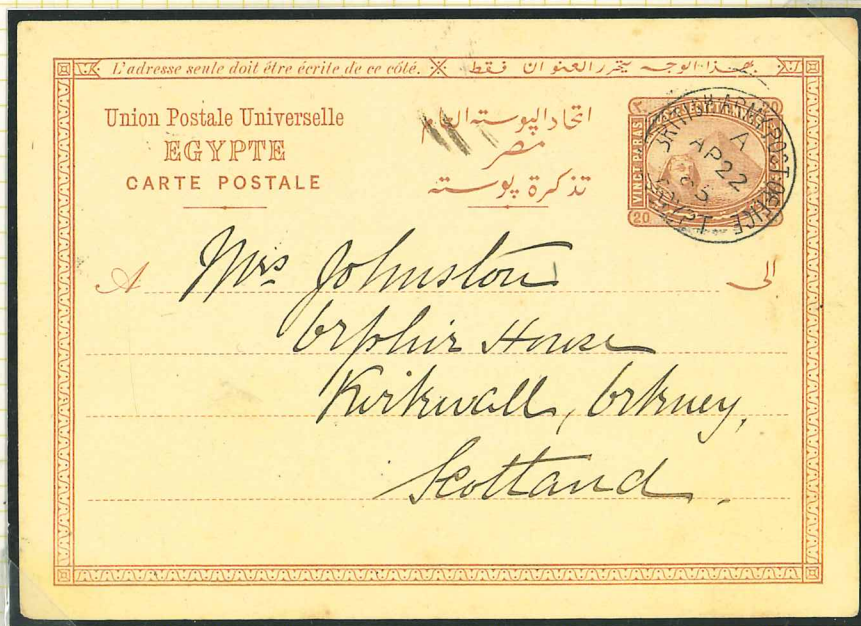 L'adresse seule doit être écrite de ce côté.
بهذا الوجه يتحرر العنوان فقط
Union Postale Universelle
EGYPTE
CARTE POSTALE
اتحاد البوسته ال
مصر
تذكرة بوسته
VINGT PARAS
20
BRITISH ARMY POST OFFICE
A
AP 22
EGYPT
A
الى
Mrs Johnston
Orphir House
Kirkwall, Orkney,
Scotland.